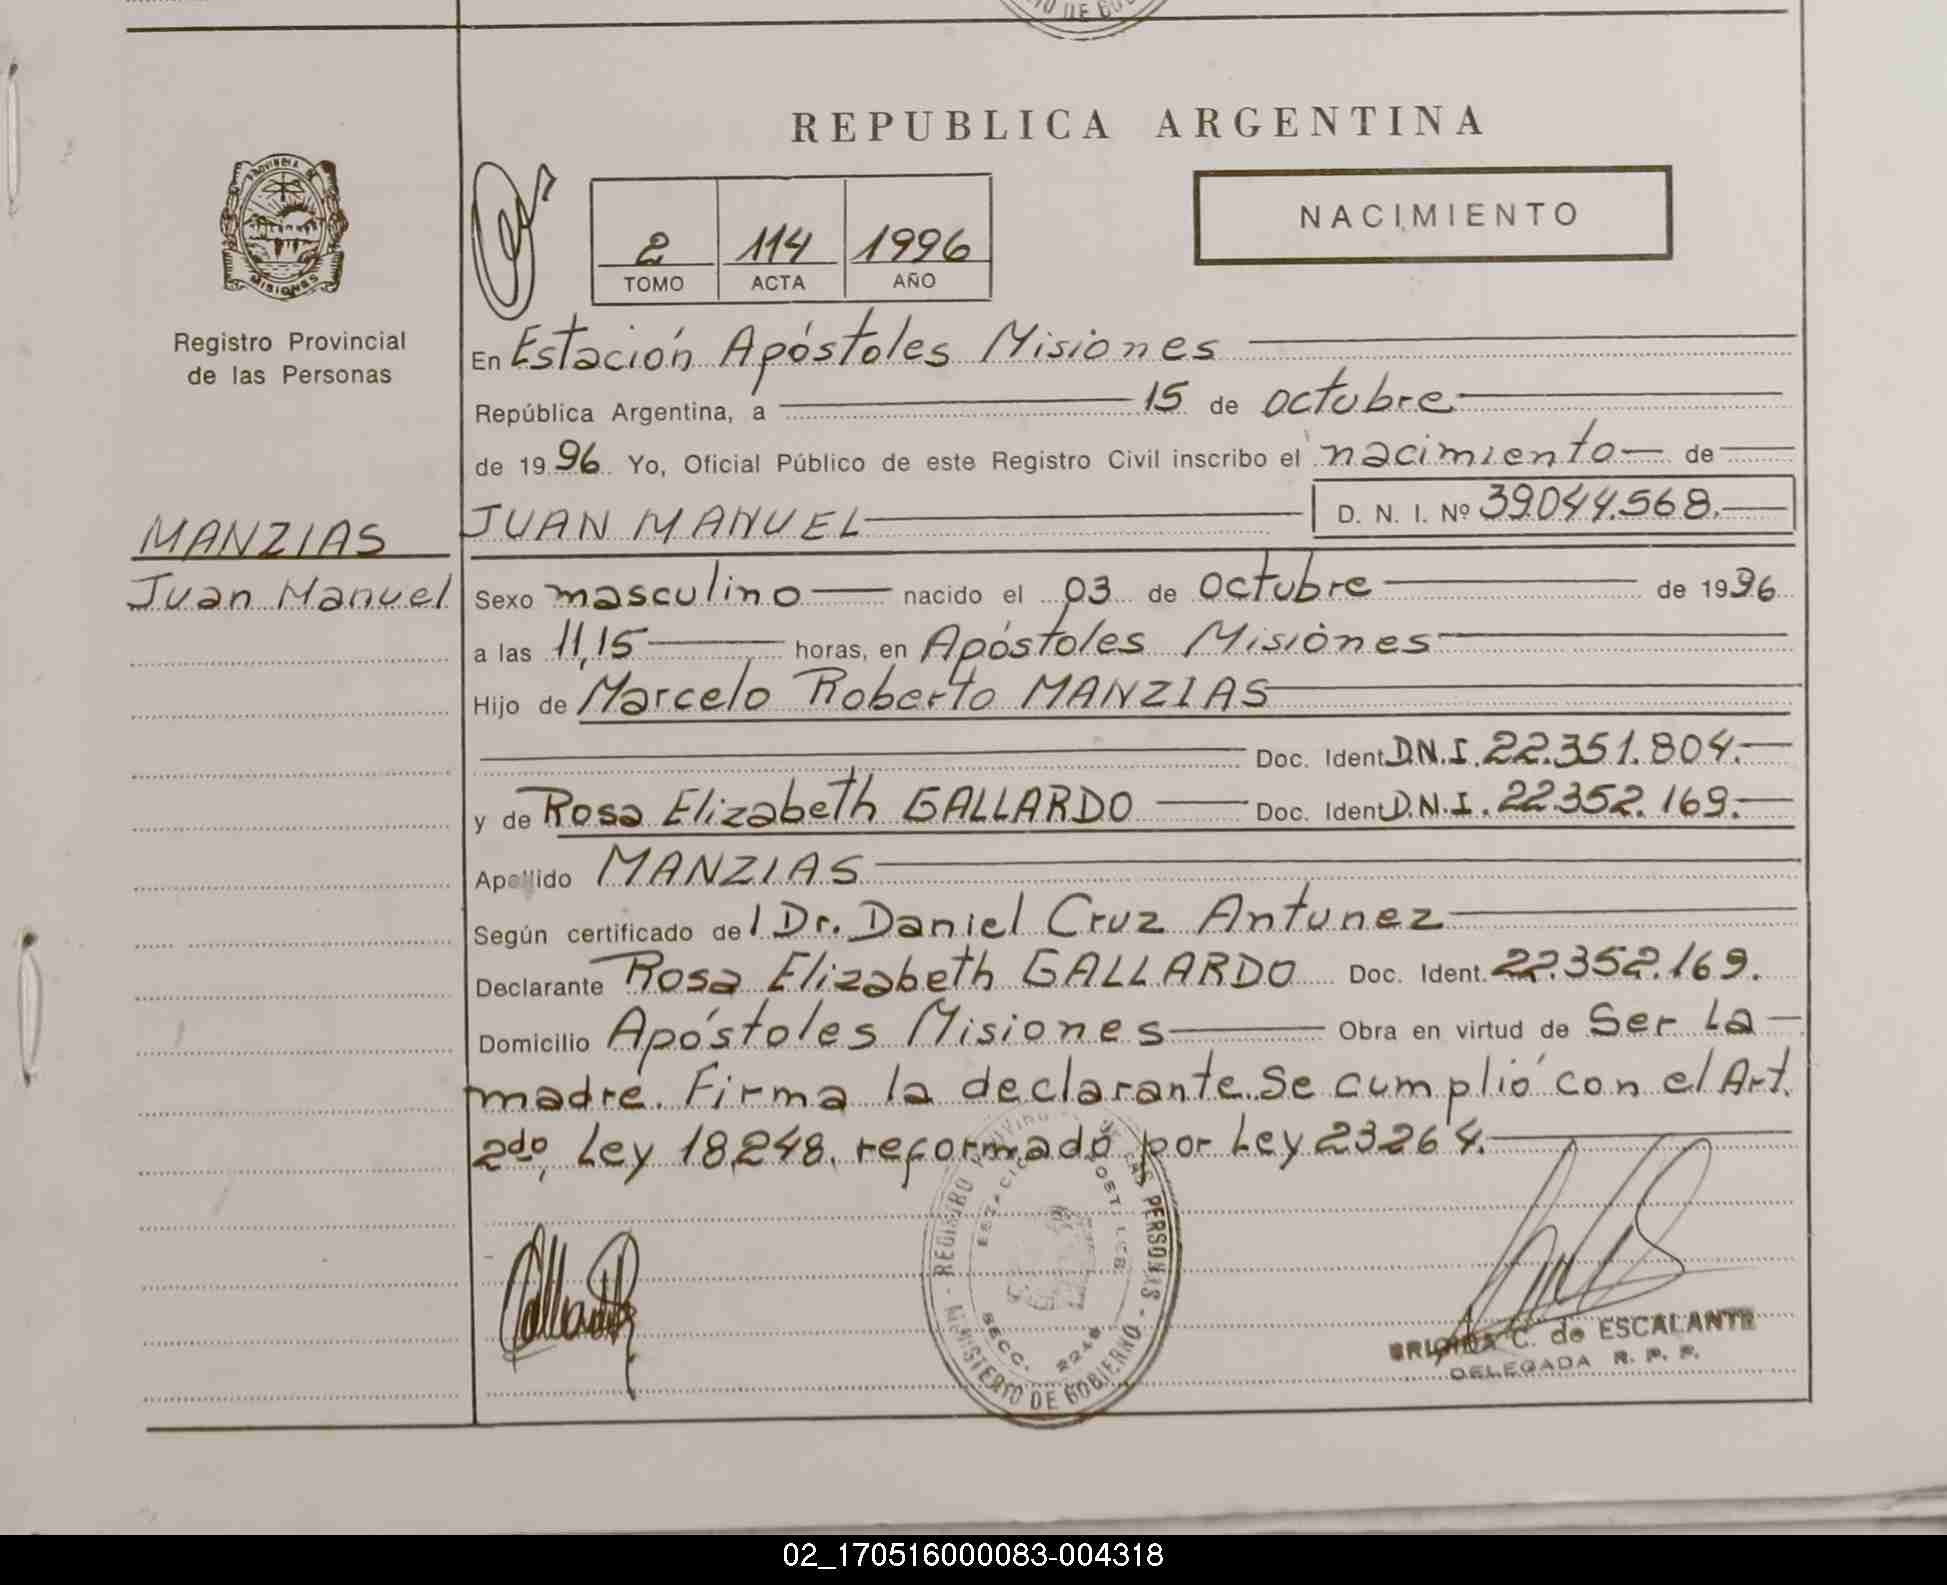 REPUBLICA ARGENTINA
PROVINCIA DE
MISIONES
Registro Provincial
de las Personas
2 114 1996
TOMO ACTA AÑO
NACIMIENTO
En Estación Apóstoles Misiones
República Argentina, a 15 de octubre
de 1996 Yo, Oficial Público de este Registro Civil inscribo el nacimiento de
JUAN MANUEL D. N. I. Nº 39.044.568.
MANZIAS
Juan Manuel
Sexo masculino nacido el 03 de octubre de 1996
a las 11,15 horas, en Apóstoles Misiones
Hijo de Marcelo Roberto MANZIAS
Doc. Ident. D.N.I. 22.351.804.
y de Rosa Elizabeth GALLARDO Doc. Ident. D.N.I. 22.352.169.
Apellido MANZIAS
Según certificado del Dr. Daniel Cruz Antunez
Declarante Rosa Elizabeth GALLARDO Doc. Ident. 22.352.169.
Domicilio Apóstoles Misiones Obra en virtud de Ser La
madre. Firma la declarante. Se cumplió con el Art.
2do, Ley 18.248. reformado por Ley 23264.
REGISTRO DE LAS PERSONAS - MINISTERIO DE GOBIERNO -
SECC. 2248
BRIGIDA C. de ESCALANTE
DELEGADA R. P. P.
02_170516000083-004318